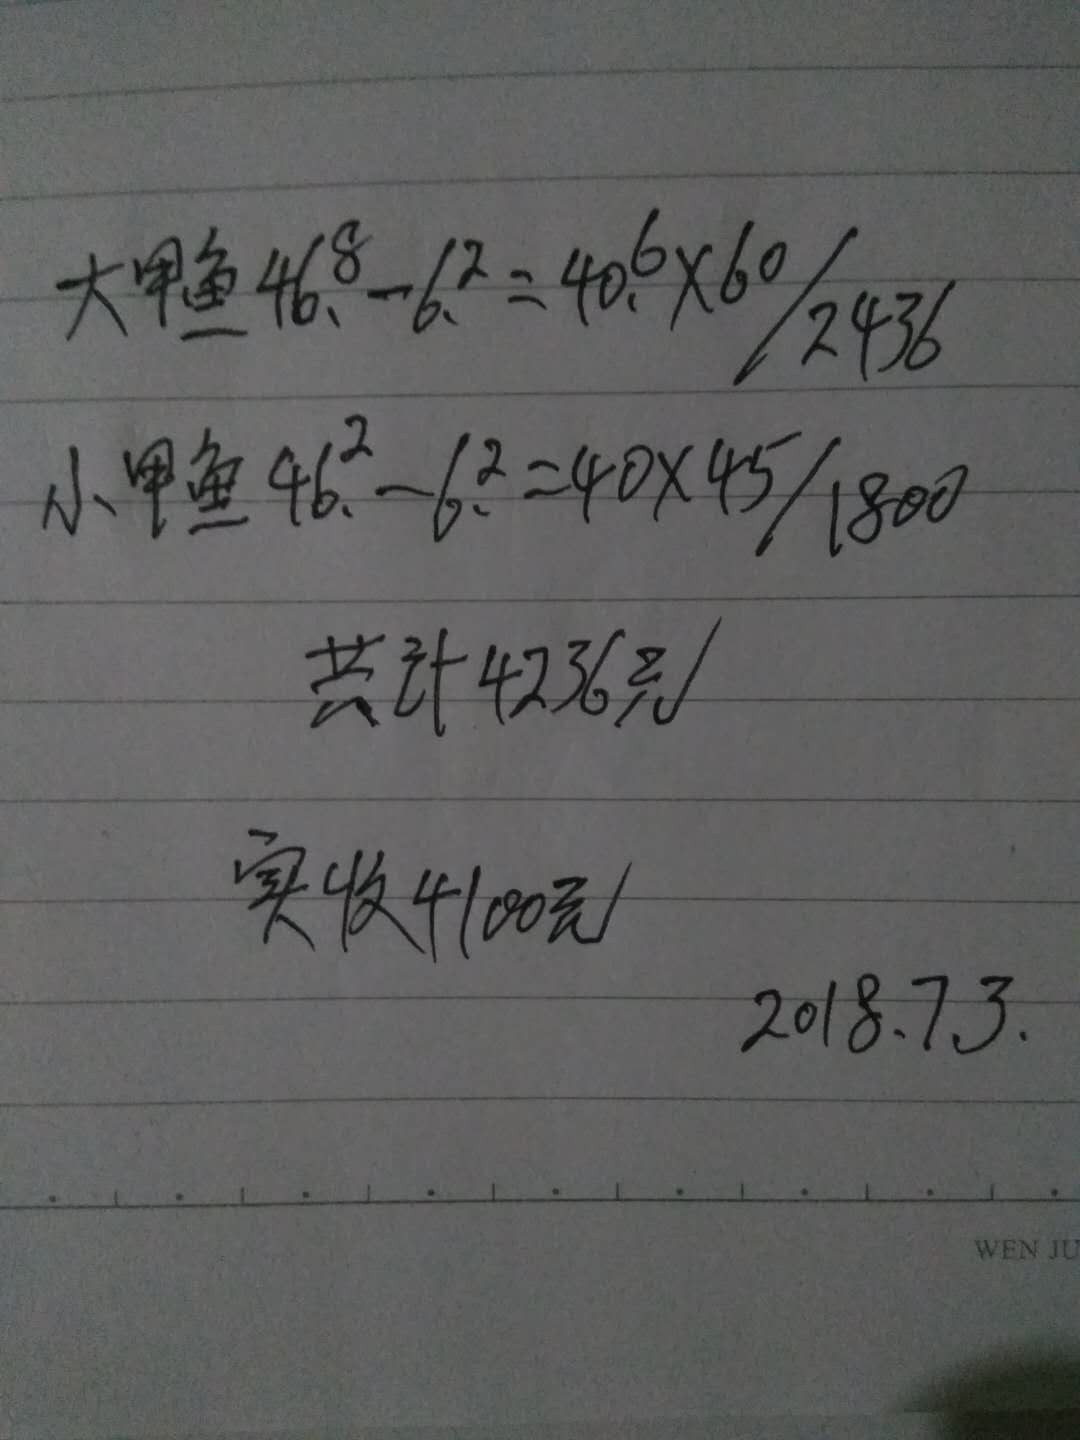 大甲鱼46.8-6.2=40.6×60/2436
小甲鱼46.2-6.2=40×45/1800
共计4236元/
实收4100元/
2018.7.3.
WEN JU